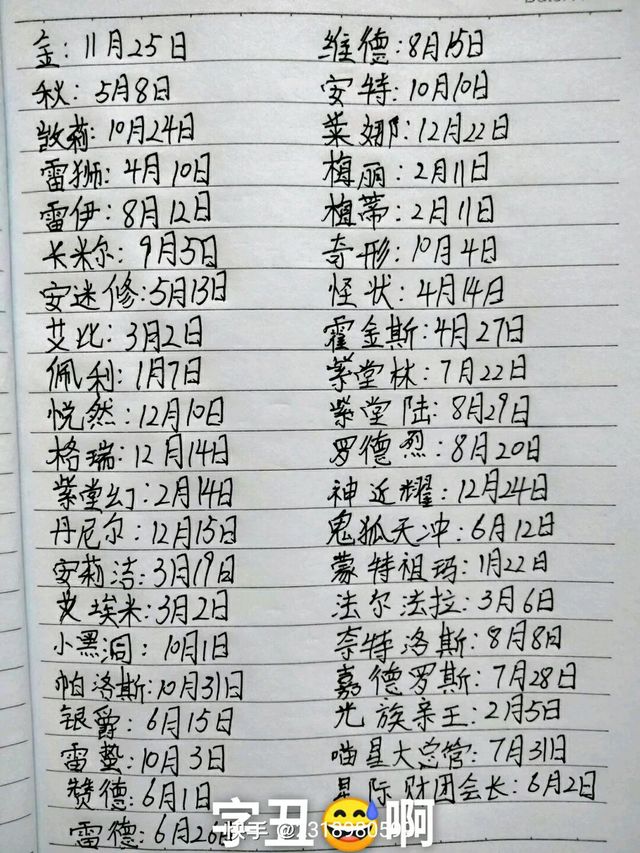 金:11月25日
秋:5月8日
敦莉:10月24日
雷狮:4月10日
雷伊:8月12日
卡米尔:9月5日
安迷修:5月13日
艾比:3月2日
佩利:1月7日
悦然:12月10日
格瑞:12月14日
紫堂幻:2月14日
丹尼尔:12月15日
安莉洁:3月19日
艾埃米:3月2日
小黑洞:10月1日
帕洛斯:10月31日
银爵:6月15日
雷蛰:10月3日
赞德:6月1日
雷德:6月20日
维德:8月15日
安特:10月10日
莱娜:12月22日
梅丽:2月11日
梅蒂:2月11日
奇形:10月4日
怪状:4月14日
霍金斯:4月27日
紫堂林:7月22日
紫堂陆:8月29日
罗德烈:8月20日
神近耀:12月24日
鬼狐天冲:6月12日
蒙特祖玛:1月22日
法尔法拉:3月6日
奈特洛斯:8月8日
嘉德罗斯:7月28日
光族亲王:2月5日
喵星大总管:7月31日
星际财团会长:6月2日
字丑😅啊
快手